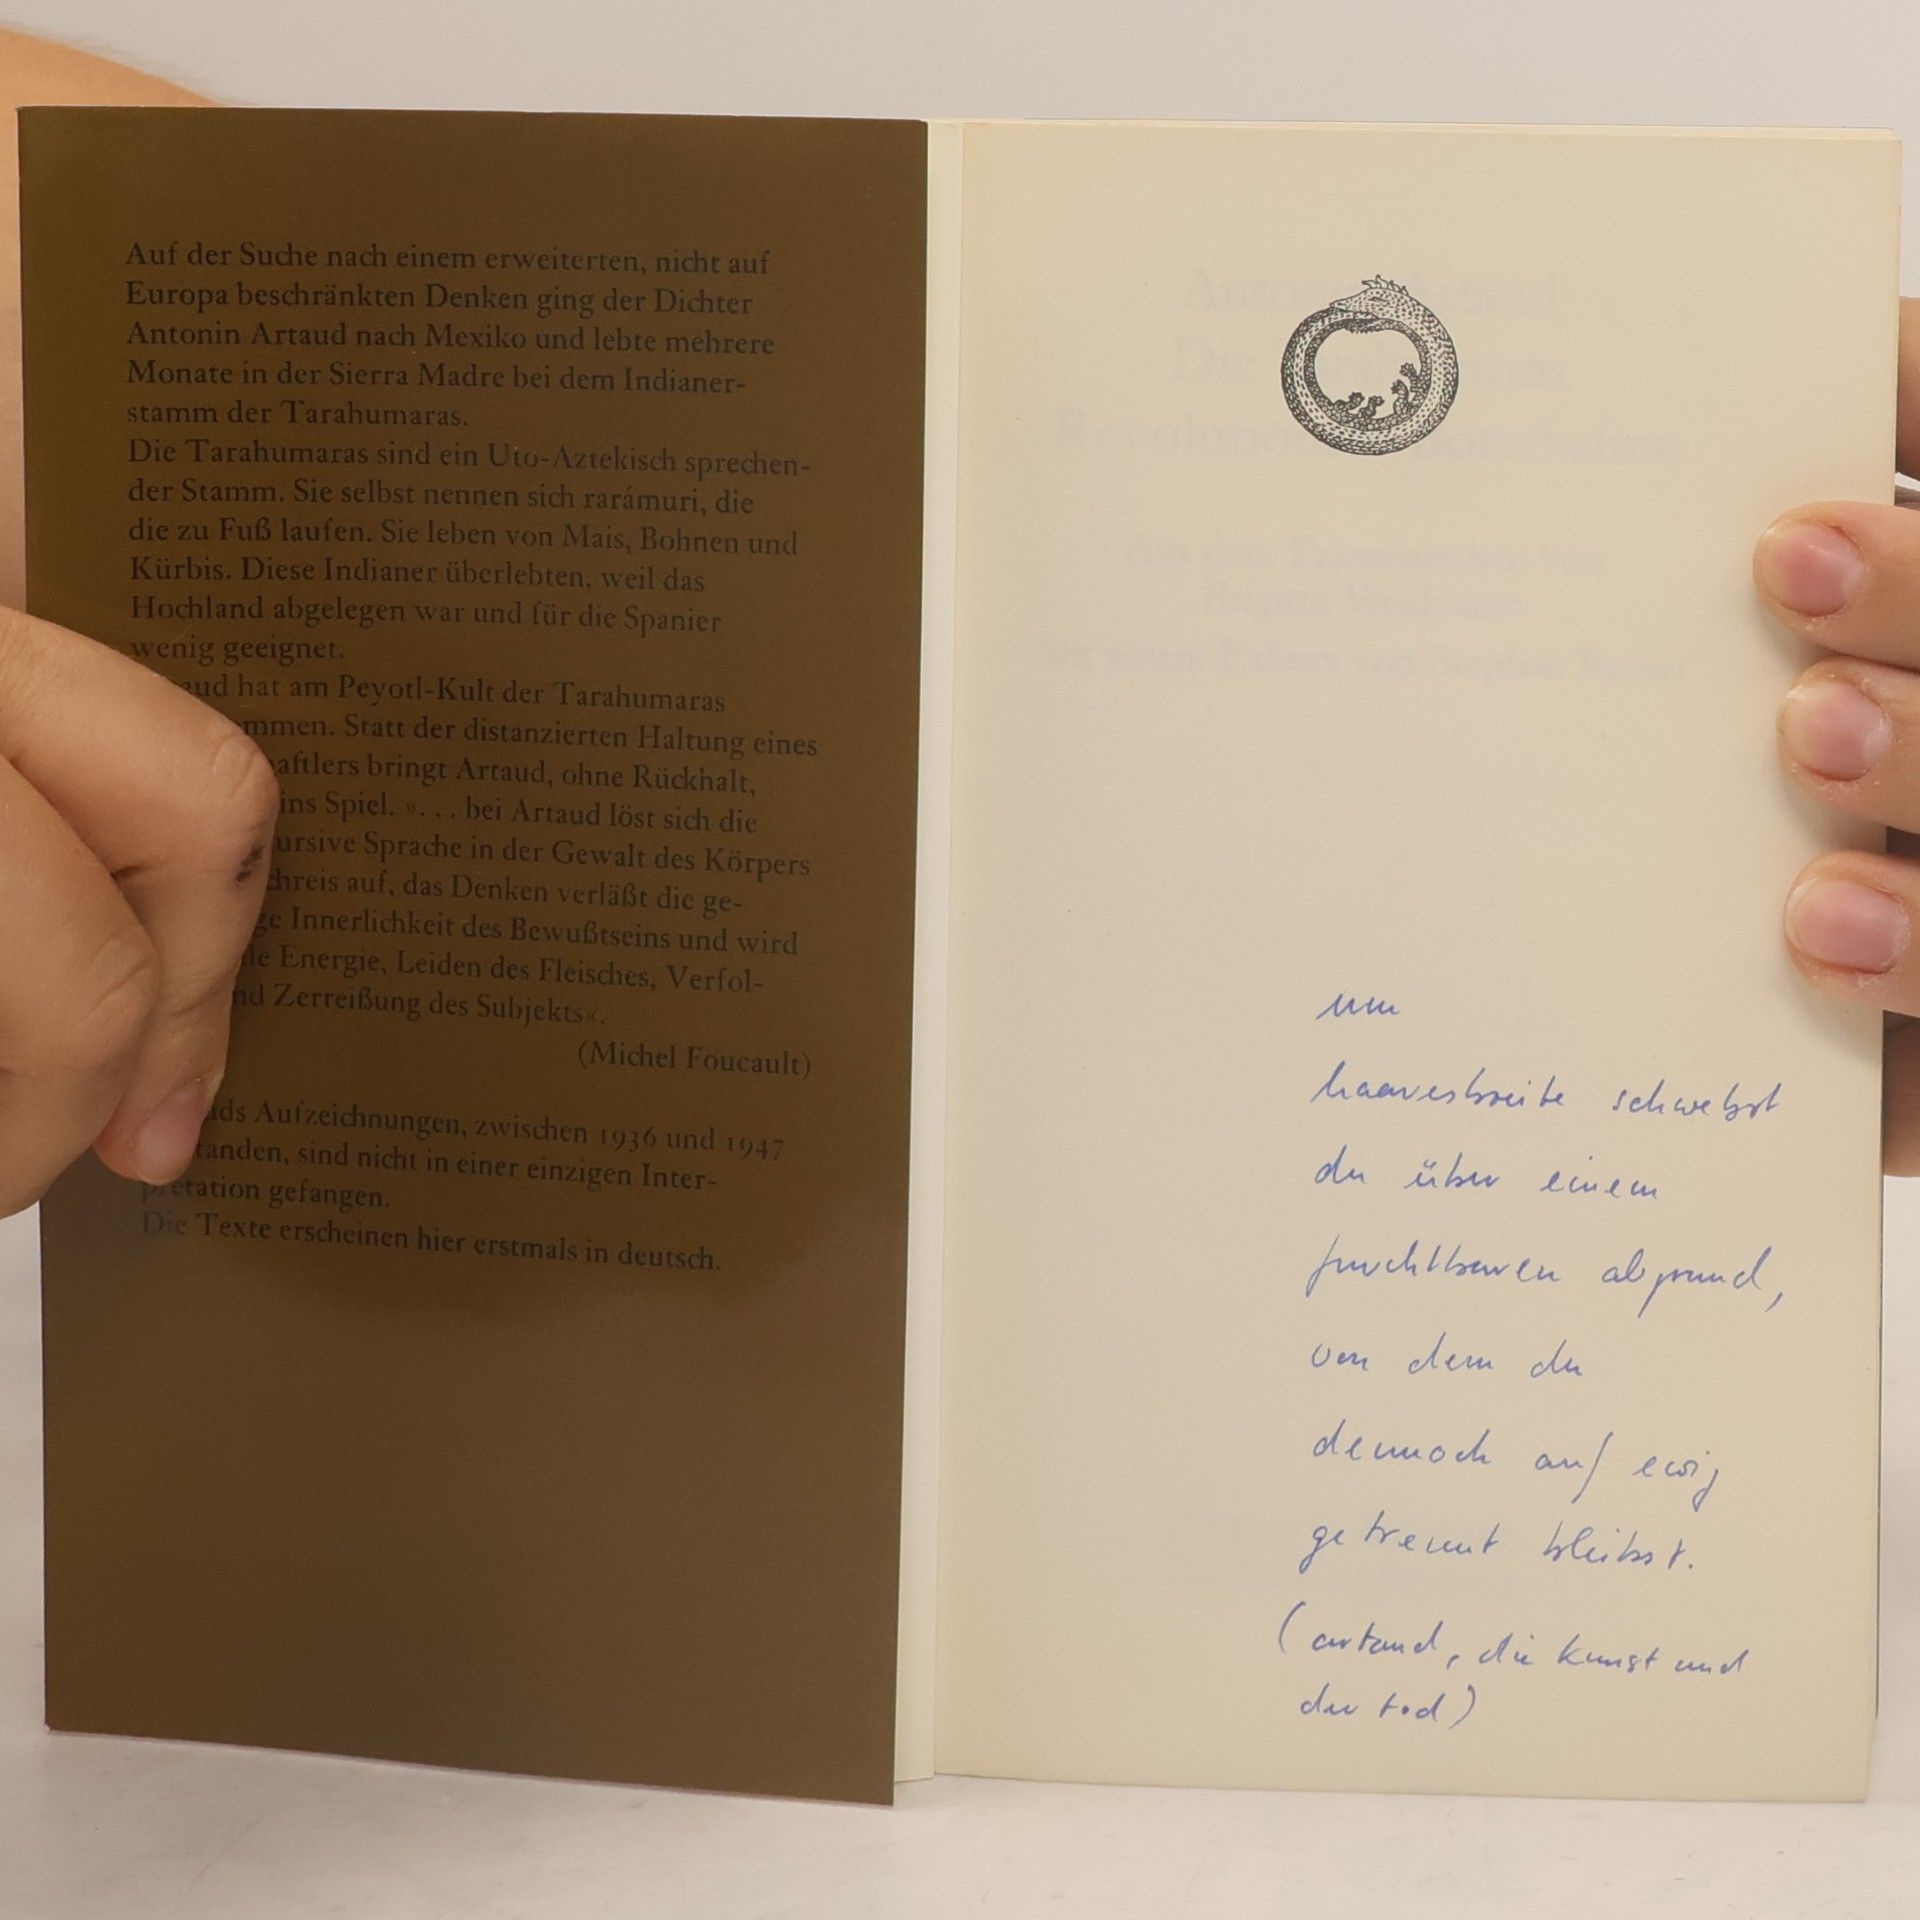 Auf der Suche nach einem erweiterten, nicht auf
Europa beschränkten Denken ging der Dichter
Antonin Artaud nach Mexiko und lebte mehrere
Monate in der Sierra Madre bei dem Indianer-
stamm der Tarahumaras.
Die Tarahumaras sind ein Uto-Aztekisch sprechen-
der Stamm. Sie selbst nennen sich rarámuri, die
die zu Fuß laufen. Sie leben von Mais, Bohnen und
Kürbis. Diese Indianer überlebten, weil das
Hochland abgelegen war und für die Spanier
wenig geeignet.
aud hat am Peyotl-Kult der Tarahumaras
mmen. Statt der distanzierten Haltung eines
aftlers bringt Artaud, ohne Rückhalt,
ins Spiel. »... bei Artaud löst sich die
ursive Sprache in der Gewalt des Körpers
hreis auf, das Denken verläßt die ge-
ge Innerlichkeit des Bewußtseins und wird
le Energie, Leiden des Fleisches, Verfol-
nd Zerreißung des Subjekts«.
(Michel Foucault)
ds Aufzeichnungen, zwischen 1936 und 1947
tanden, sind nicht in einer einzigen Inter-
pretation gefangen.
Die Texte erscheinen hier erstmals in deutsch.
um
haaresbreite schwebst
du über einem
furchtbaren abgrund,
von dem du
dennoch auf ewig
getrennt bleibst.
(artaud, die kunst und
der tod)